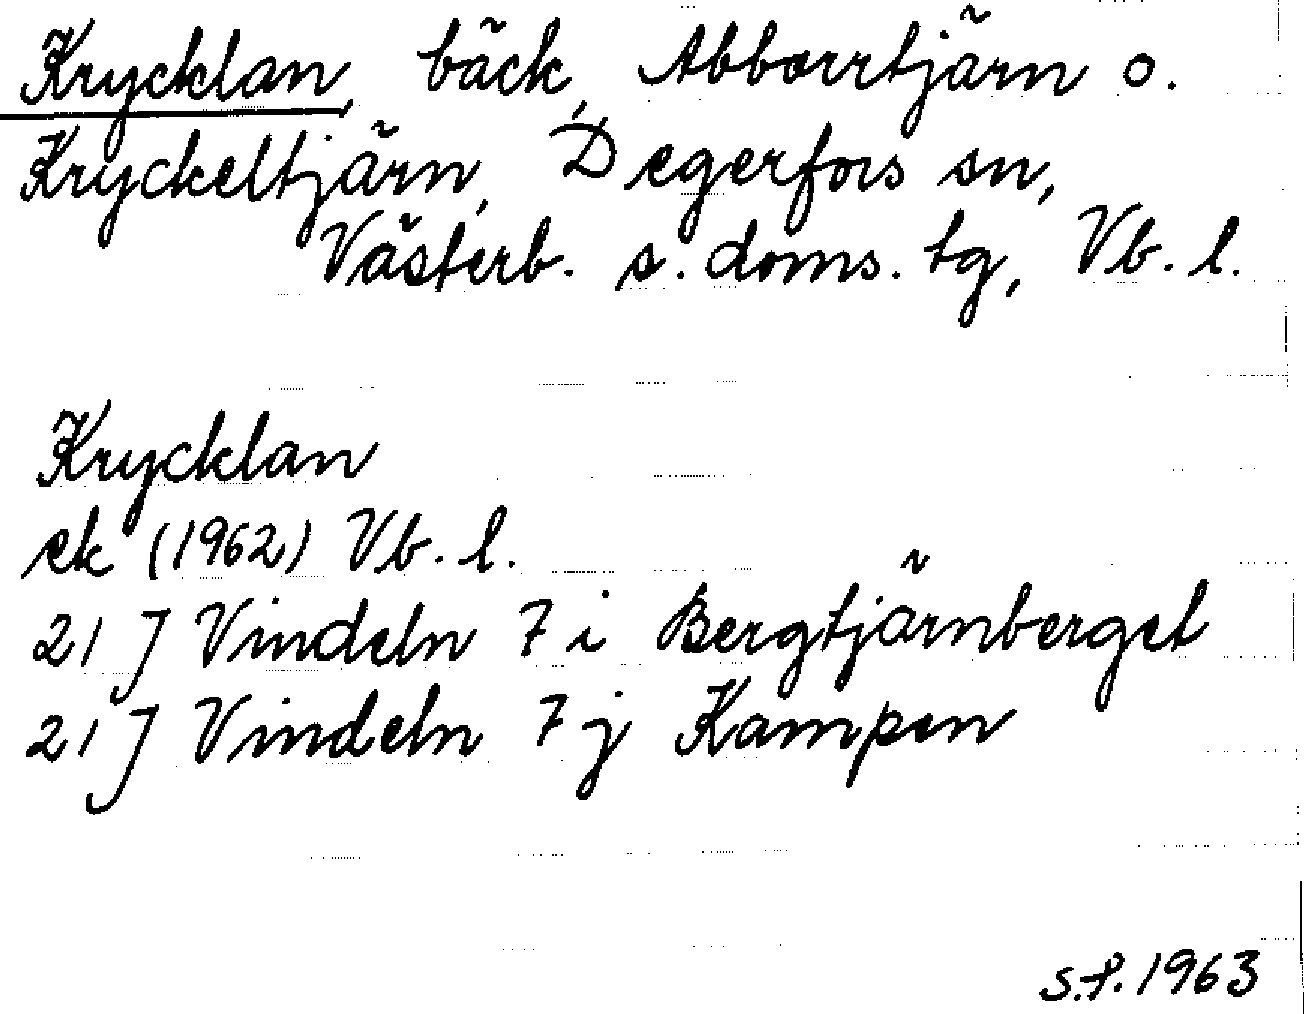 Krycklan, bäck, Abborrtjärn o.
Kryckeltjärn, Degerfors sn,
Västerb. s. doms. tg, Vb. l.
Krycklan
ek (1962) Vb. l.
21 J Vindeln 7 i Bergtjärnberget
21 J Vindeln 7 j Kampen
S.P. 1963